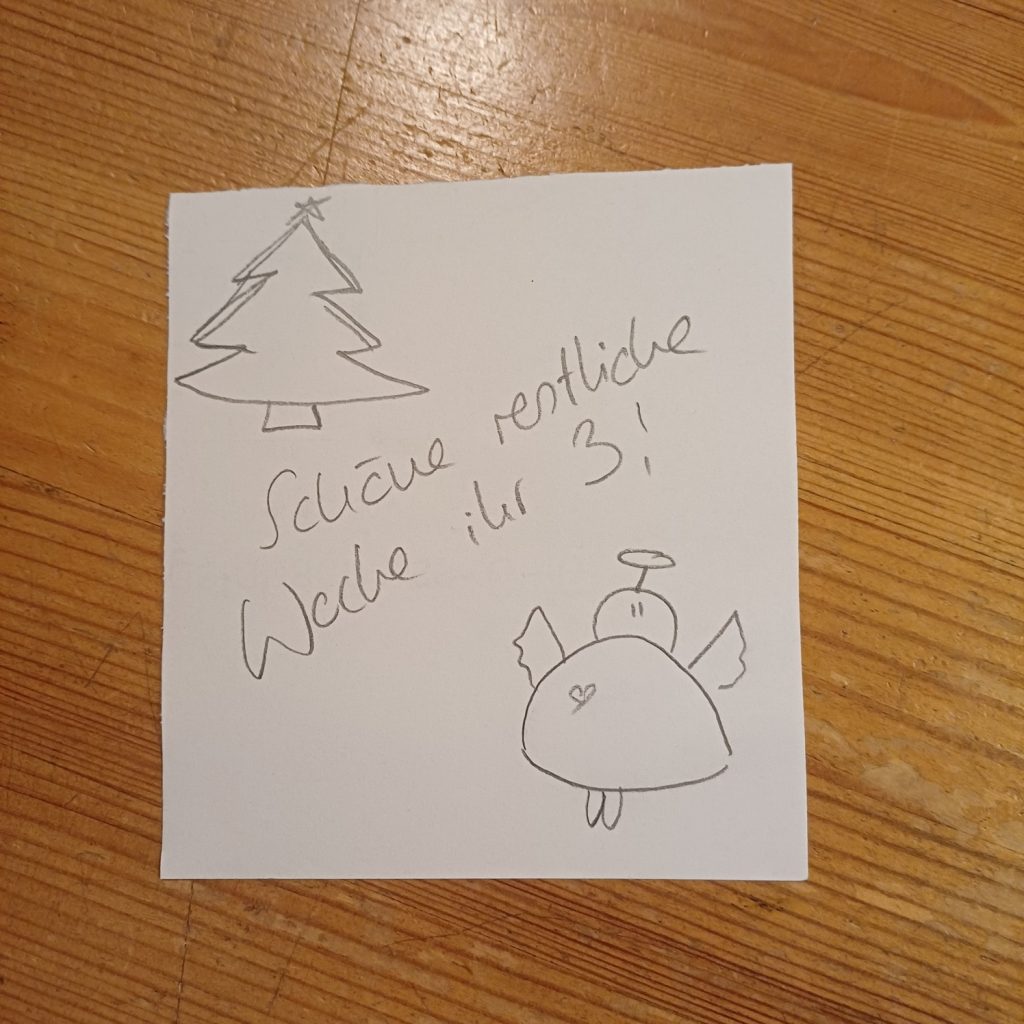 Schöne restliche
Woche ihr 3!